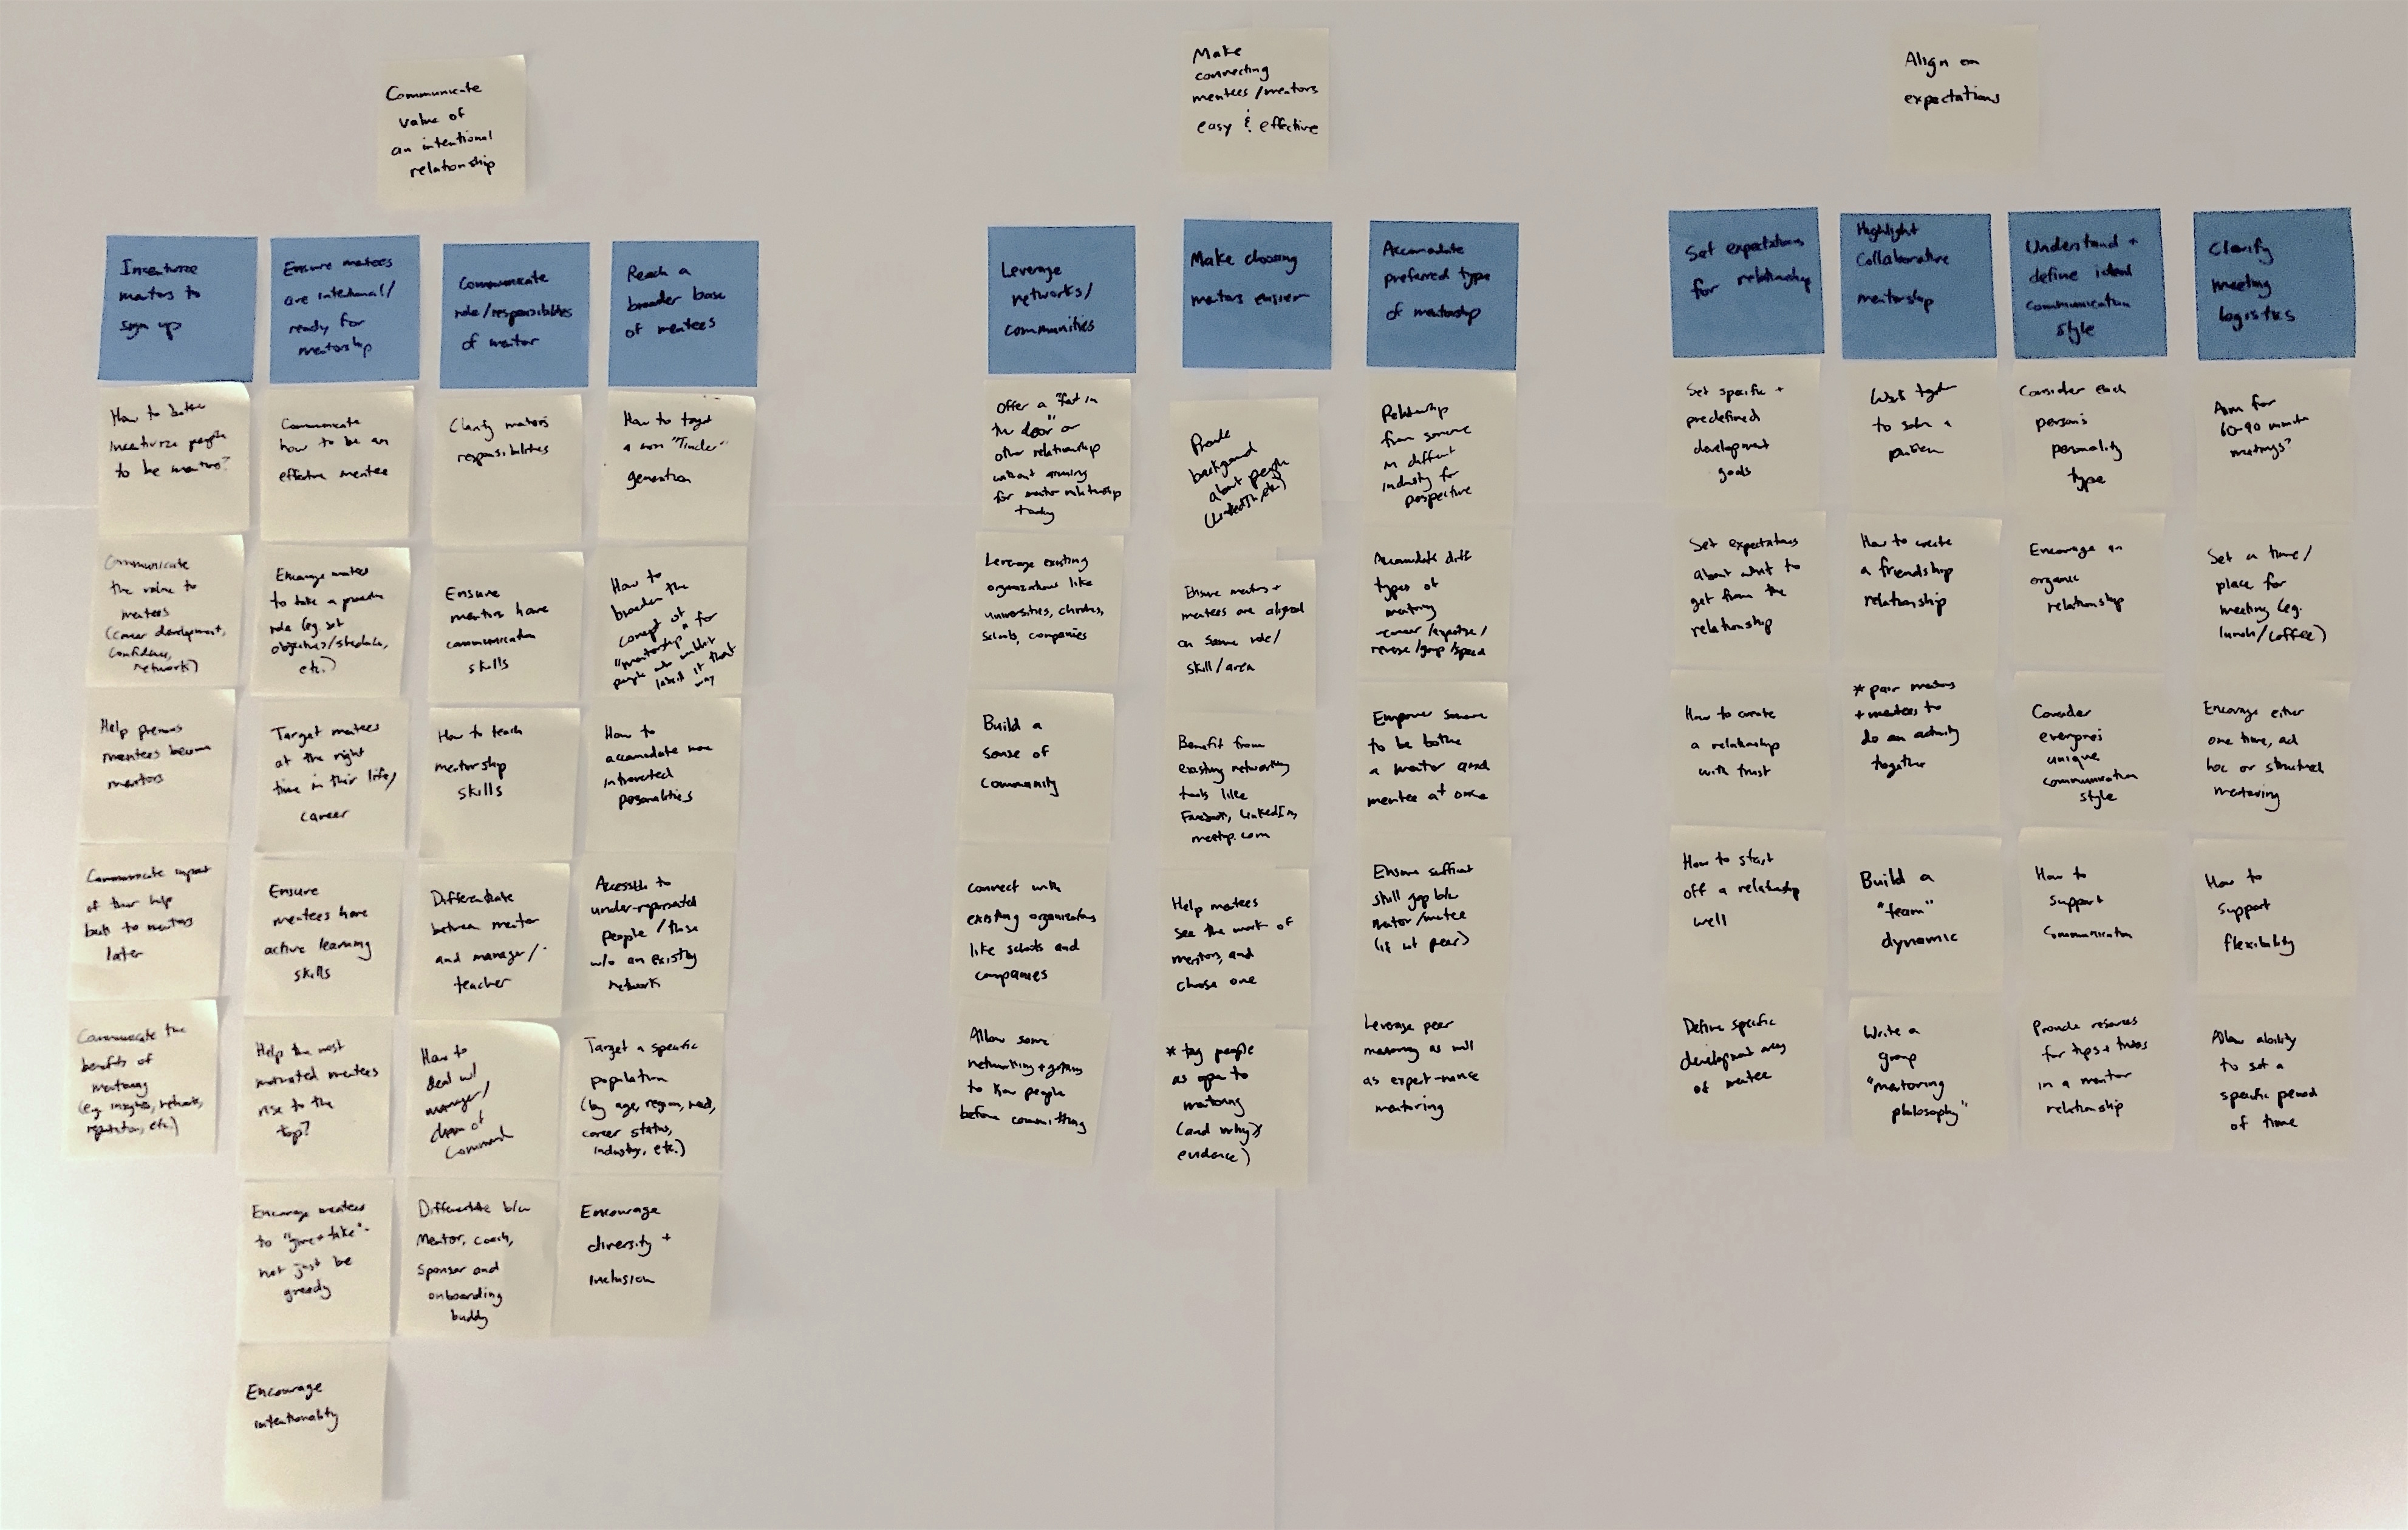 Communicate
value of
an intentional
relationship
Incentivize
mentors to
sign up
How to better
incentivize people
to be mentors?
Communicate
the value to
mentees
(career development,
confidence,
network)
Help previous
mentees become
mentors
Communicate impact
of their help
back to mentors
later
Communicate the
benefits of
mentoring
(eg. insights, network,
reputation, etc.)
Ensure mentees
are intentional/
ready for
mentorship
Communicate
how to be an
effective mentee
Encourage mentees
to take a proactive
role (eg. set
objectives/schedule,
etc.)
Target mentees
at the right
time in their life/
career
Ensure
mentees have
active learning
skills
Help the most
motivated mentees
rise to the
top?
Encourage mentees
to "give + take" -
not just be
greedy
Encourage
intentionality
Communicate
role/responsibilities
of mentor
Clarify mentors
responsibilities
Ensure
mentors have
communication
skills
How to teach
mentorship
skills
Differentiate
between mentor
and manager/
teacher
How to
deal w/
manager/
chain of
command
Differentiate b/w
Mentor, coach,
sponsor and
onboarding
buddy
Reach a
broader base
of mentees
How to target
a non "Tinder"
generation
How to
broaden the
concept of
"mentorship" for
people who wouldn't
label it that
way
How to
accomodate more
introverted
personalities
Accessible to
under-represented
people / those
w/o an existing
network
Target a specific
population
(by age, region, need,
career status,
industry, etc.)
Encourage
diversity +
inclusion
Make
connecting
mentees/mentors
easy & effective
Leverage
networks/
communities
Offer a "foot in
the door" or
other relationship
without aiming
for mentor relationship
today
Leverage existing
organizations like
universities, churches,
schools, companies
Build a
sense of
community
connect with
existing organizations
like schools and
companies
Allow some
networking + getting
to know people
before committing
Make choosing
mentors easier
Provide
background
about people
(LinkedIn, etc.)
Ensure mentors +
mentees are aligned
on same role/
skill/area
Benefit from
existing networking
tools like
Facebook, LinkedIn,
meetup.com
Help mentees
see the work of
mentors, and
choose one
* tag people
as open to
mentoring
(and why >
evidence)
Accomodate
preferred type
of mentorship
Relationship
from someone
in different
industry for
perspective
Accomodate diff
types of
mentoring
-career/expertise/
reverse/group/speed
Empower someone
to be both
a mentor and
mentee at once
Ensure sufficient
skill gap b/w
mentor/mentee
(if not peer)
Leverage peer
mentoring as well
as expert-novice
mentoring
Align on
expectations
Set expectations
for relationship
Set specific +
predefined
development
goals
Set expectations
about what to
get from the
relationship
How to create
a relationship
with trust
How to start
off a relationship
well
Define specific
development areas
of mentee
Highlight
Collaborative
mentorship
Work together
to solve a
problem
How to create
a friendship
relationship
* pair mentors
+ mentees to
do an activity
together
Build a
"team"
dynamic
Write a
group
"mentoring
philosophy"
Understand +
define ideal
communication
style
Consider each
person's
personality
type
Encourage an
organic
relationship
Consider
everyone's
unique
communication
style
How to
support
communication
Provide resources
for tips + tricks
in a mentor
relationship
Clarify
meeting
logistics
Aim for
60-90 minute
meetings?
Set a time/
place for
meeting (eg.
lunch/coffee)
Encourage either
one time, ad
hoc or structured
mentoring
How to
support
flexibility
Allow ability
to set a
specific period
of time